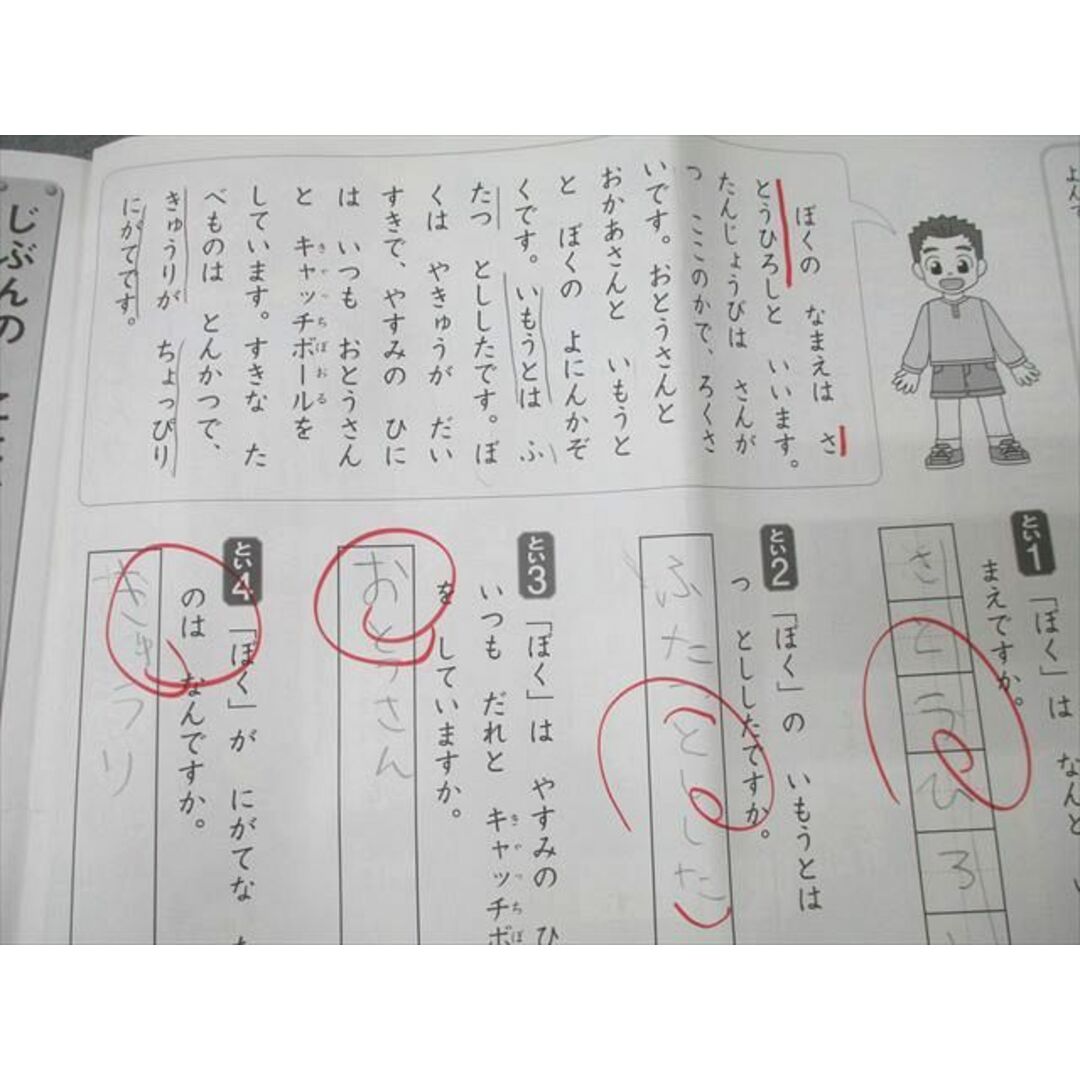 よんで
ぼくの　なまえは　さ
とうひろしと　いいます。
たんじょうびは　さんが
つ　ここのかで、ろくさ
いです。おとうさんと
おかあさんと　いもうと
と　ぼくの　よにんかぞ
くです。いもうとは　ふ
たつ　とししたです。ぼ
くは　やきゅうが　だい
すきで、やすみの　ひに
は　いつも　おとうさん
きゃっちぼおる
と　キャッチボールを
しています。すきな　た
べものは　とんかつで、
きゅうりが　ちょっぴり
にがてです。
とい1　「ぼく」は　なんと
まえですか。
さとうひろし
とい2　「ぼく」の　いもうとは
っ　とししたですか。
ふたつとしした
とい3　「ぼく」は　やすみの　ひ
いつも　だれと　キャッチボ
きゃっちぼ
を　していますか。
おとうさん
とい4　「ぼく」が　にがてな　た
のは　なんですか。
きゅうり
じぶんの